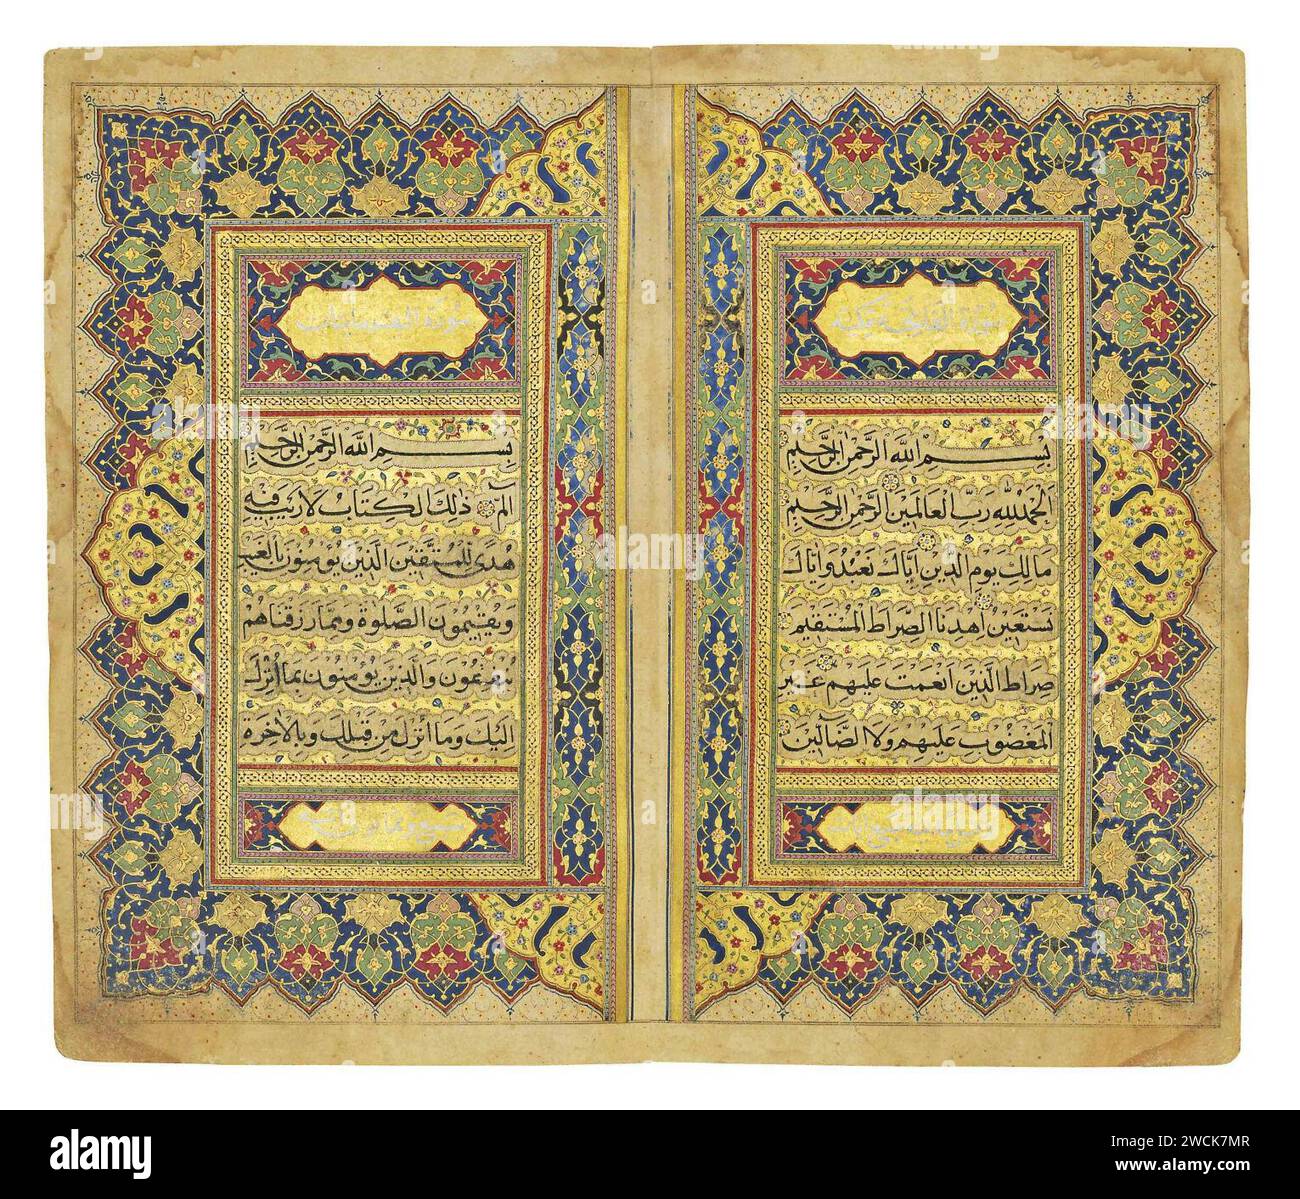 بسم الله الرحمن الرحيم
الحمد لله رب العالمين الرحمن الرحيم
مالك يوم الدين اياك نعبد واياك
نستعين اهدنا الصراط المستقيم
صراط الذين انعمت عليهم غير
المغضوب عليهم ولا الضالين
بسم الله الرحمن الرحيم
الم ذلك الكتاب لا ريب فيه
هدى للمتقين الذين يؤمنون بالغيب
ويقيمون الصلوة ومما رزقناهم
ينفقون والذين يؤمنون بما انزل
اليك وما انزل من قبلك وبالاخرة
alamy
Image ID: 2WCK7MR
www.alamy.com